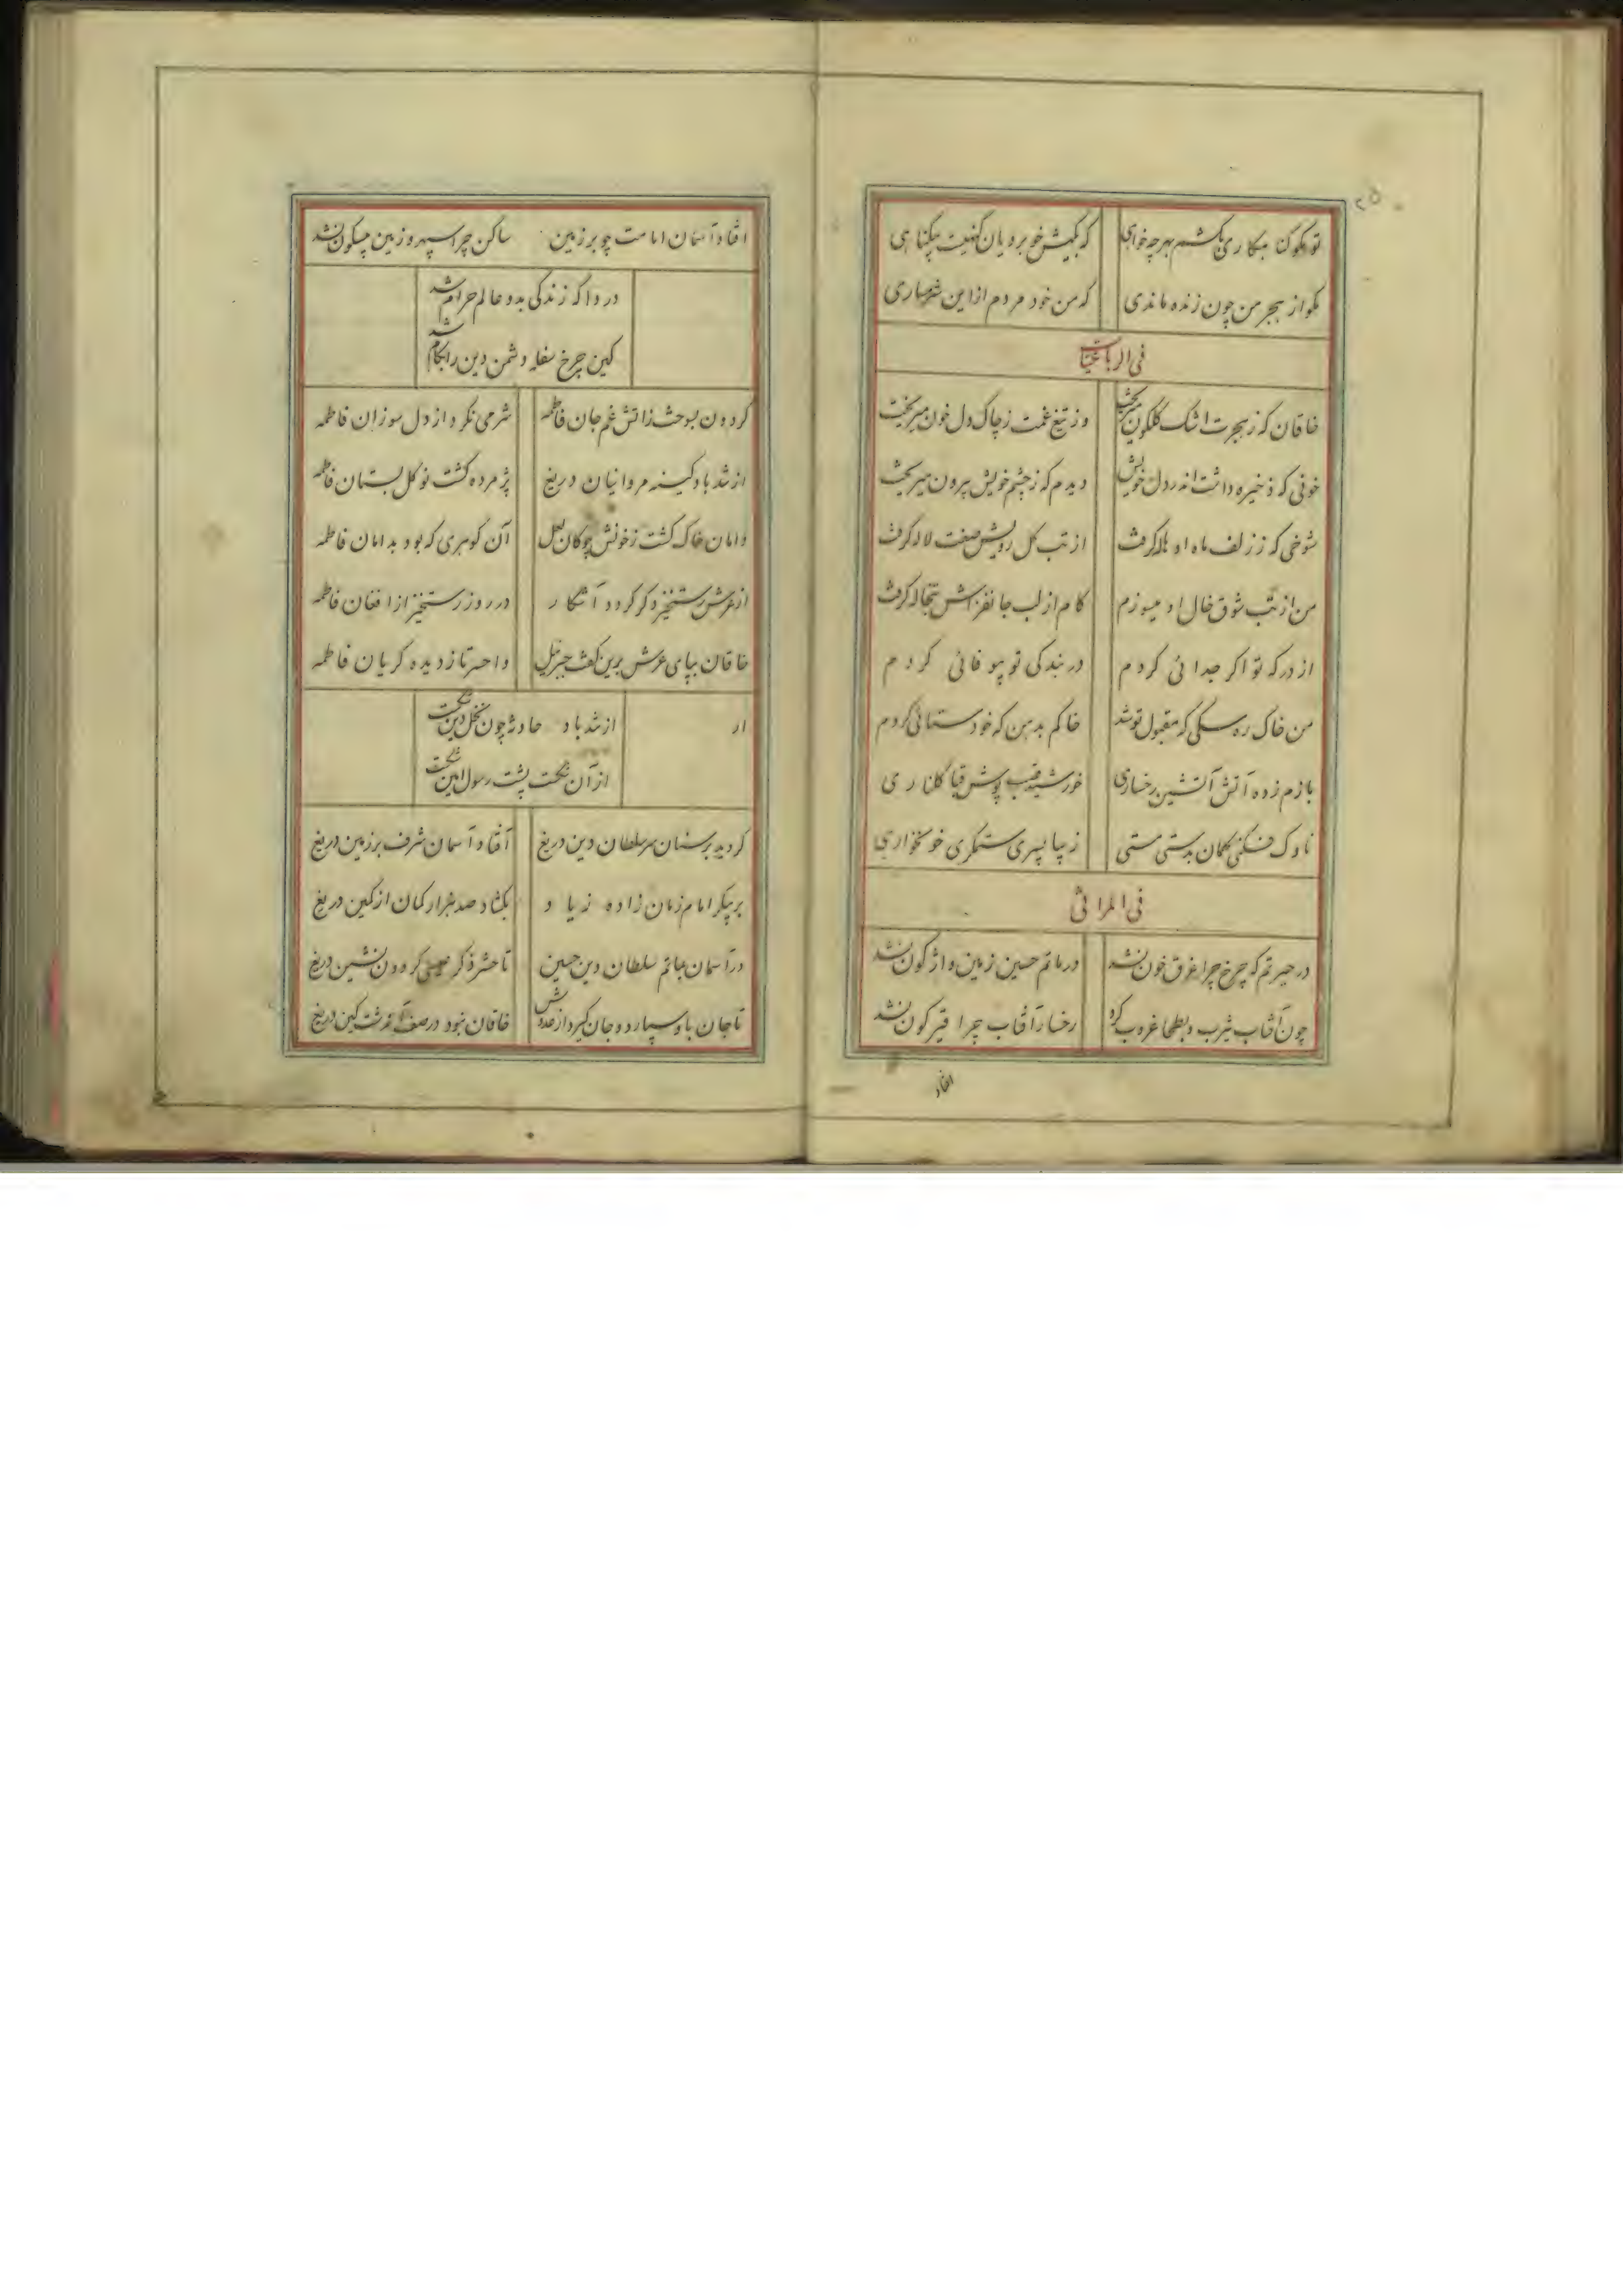 ۲۵
تو مکو کنا هکاری بکشم بهر چه خواهی که بکیش خوبرویان کنهیست بیکناهی
مکو از هجر من چون زنده ماندی که من خود مردم از این شرمساری
فی الرباعیات
خاقان که ز هجرت اشک کلکون میریخت وز تیغ غمت ز چاک دل خون میریخت
خونی که ذخیره داشت اندر دل خویش دیدم که ز چشم خویش بیرون میریخت
شوخی که ز زلف ماه او هاله کرفت از تب کل رویش صفت لاله کرفت
من از تب شوق خال او میسوزم کام از لب جانفزاش تبخاله کرفت
از درکه تو اکر جدائی کردم در بندکی تو بیوفائی کردم
من خاک ره سکی که مقبول تو شد خاکم بدهن که خودستائی کردم
بازم زده آتش آتشین رخساری خورشید قصب پوش قبا کلناری
ناوک فکنی کمان بدستی مستی زیبا پسری ستمکری خونخواری
فی المراثی
در حیرتم که چرخ چرا غرق خون نشد در ماتم حسین زمین واژکون نشد
چون آفتاب یثرب و بطحا غروب کرد رخسار آفتاب چرا قیرکون نشد
افتاد
افتاد آسمان امامت چو بر زمین ساکن چرا سپهر و زمین بیسکون نشد
دردا که زندکی بدو عالم حرام شد
کین چرخ سفله دشمن دین را بکام شد
کردون بسوخت ز اتش غم جان فاطمه شرمی نکرد از دل سوزان فاطمه
از تند باد کینه مروانیان دریغ پژمرده کشت نوکل بستان فاطمه
دامان خاک کشت ز خونش چو کان لعل آن کوهری که بود بدامان فاطمه
از عرش رستخیز دکر کردد آشکار در روز رستخیز از افغان فاطمه
خاقان بپای عرش برین کفت جبرئیل واحسرتا ز دیده کریان فاطمه
از
از تند باد حادثه چون نخل دین شکست
از آن شکست پشت رسول امین شکست
کردید بر سنان سر سلطان دین دریغ آفتاد آسمان شرف بر زمین دریغ
بر پیکر امام زمان زاده زیاد بکشاد صد هزار کمان از کمین دریغ
در آسمان بماتم سلطان دین حسین تا حشر ذکر عیسی کردون نشین دریغ
تا جان باو سپارد و جان کیرد از عدوش خاقان نبود در صف آندشت کین دریغ